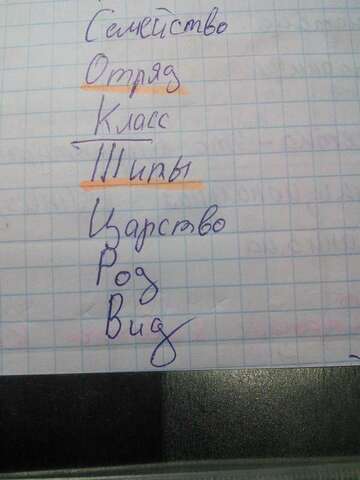 Семейство
Отряд
Класс
Шипы
Царство
Род
Вид